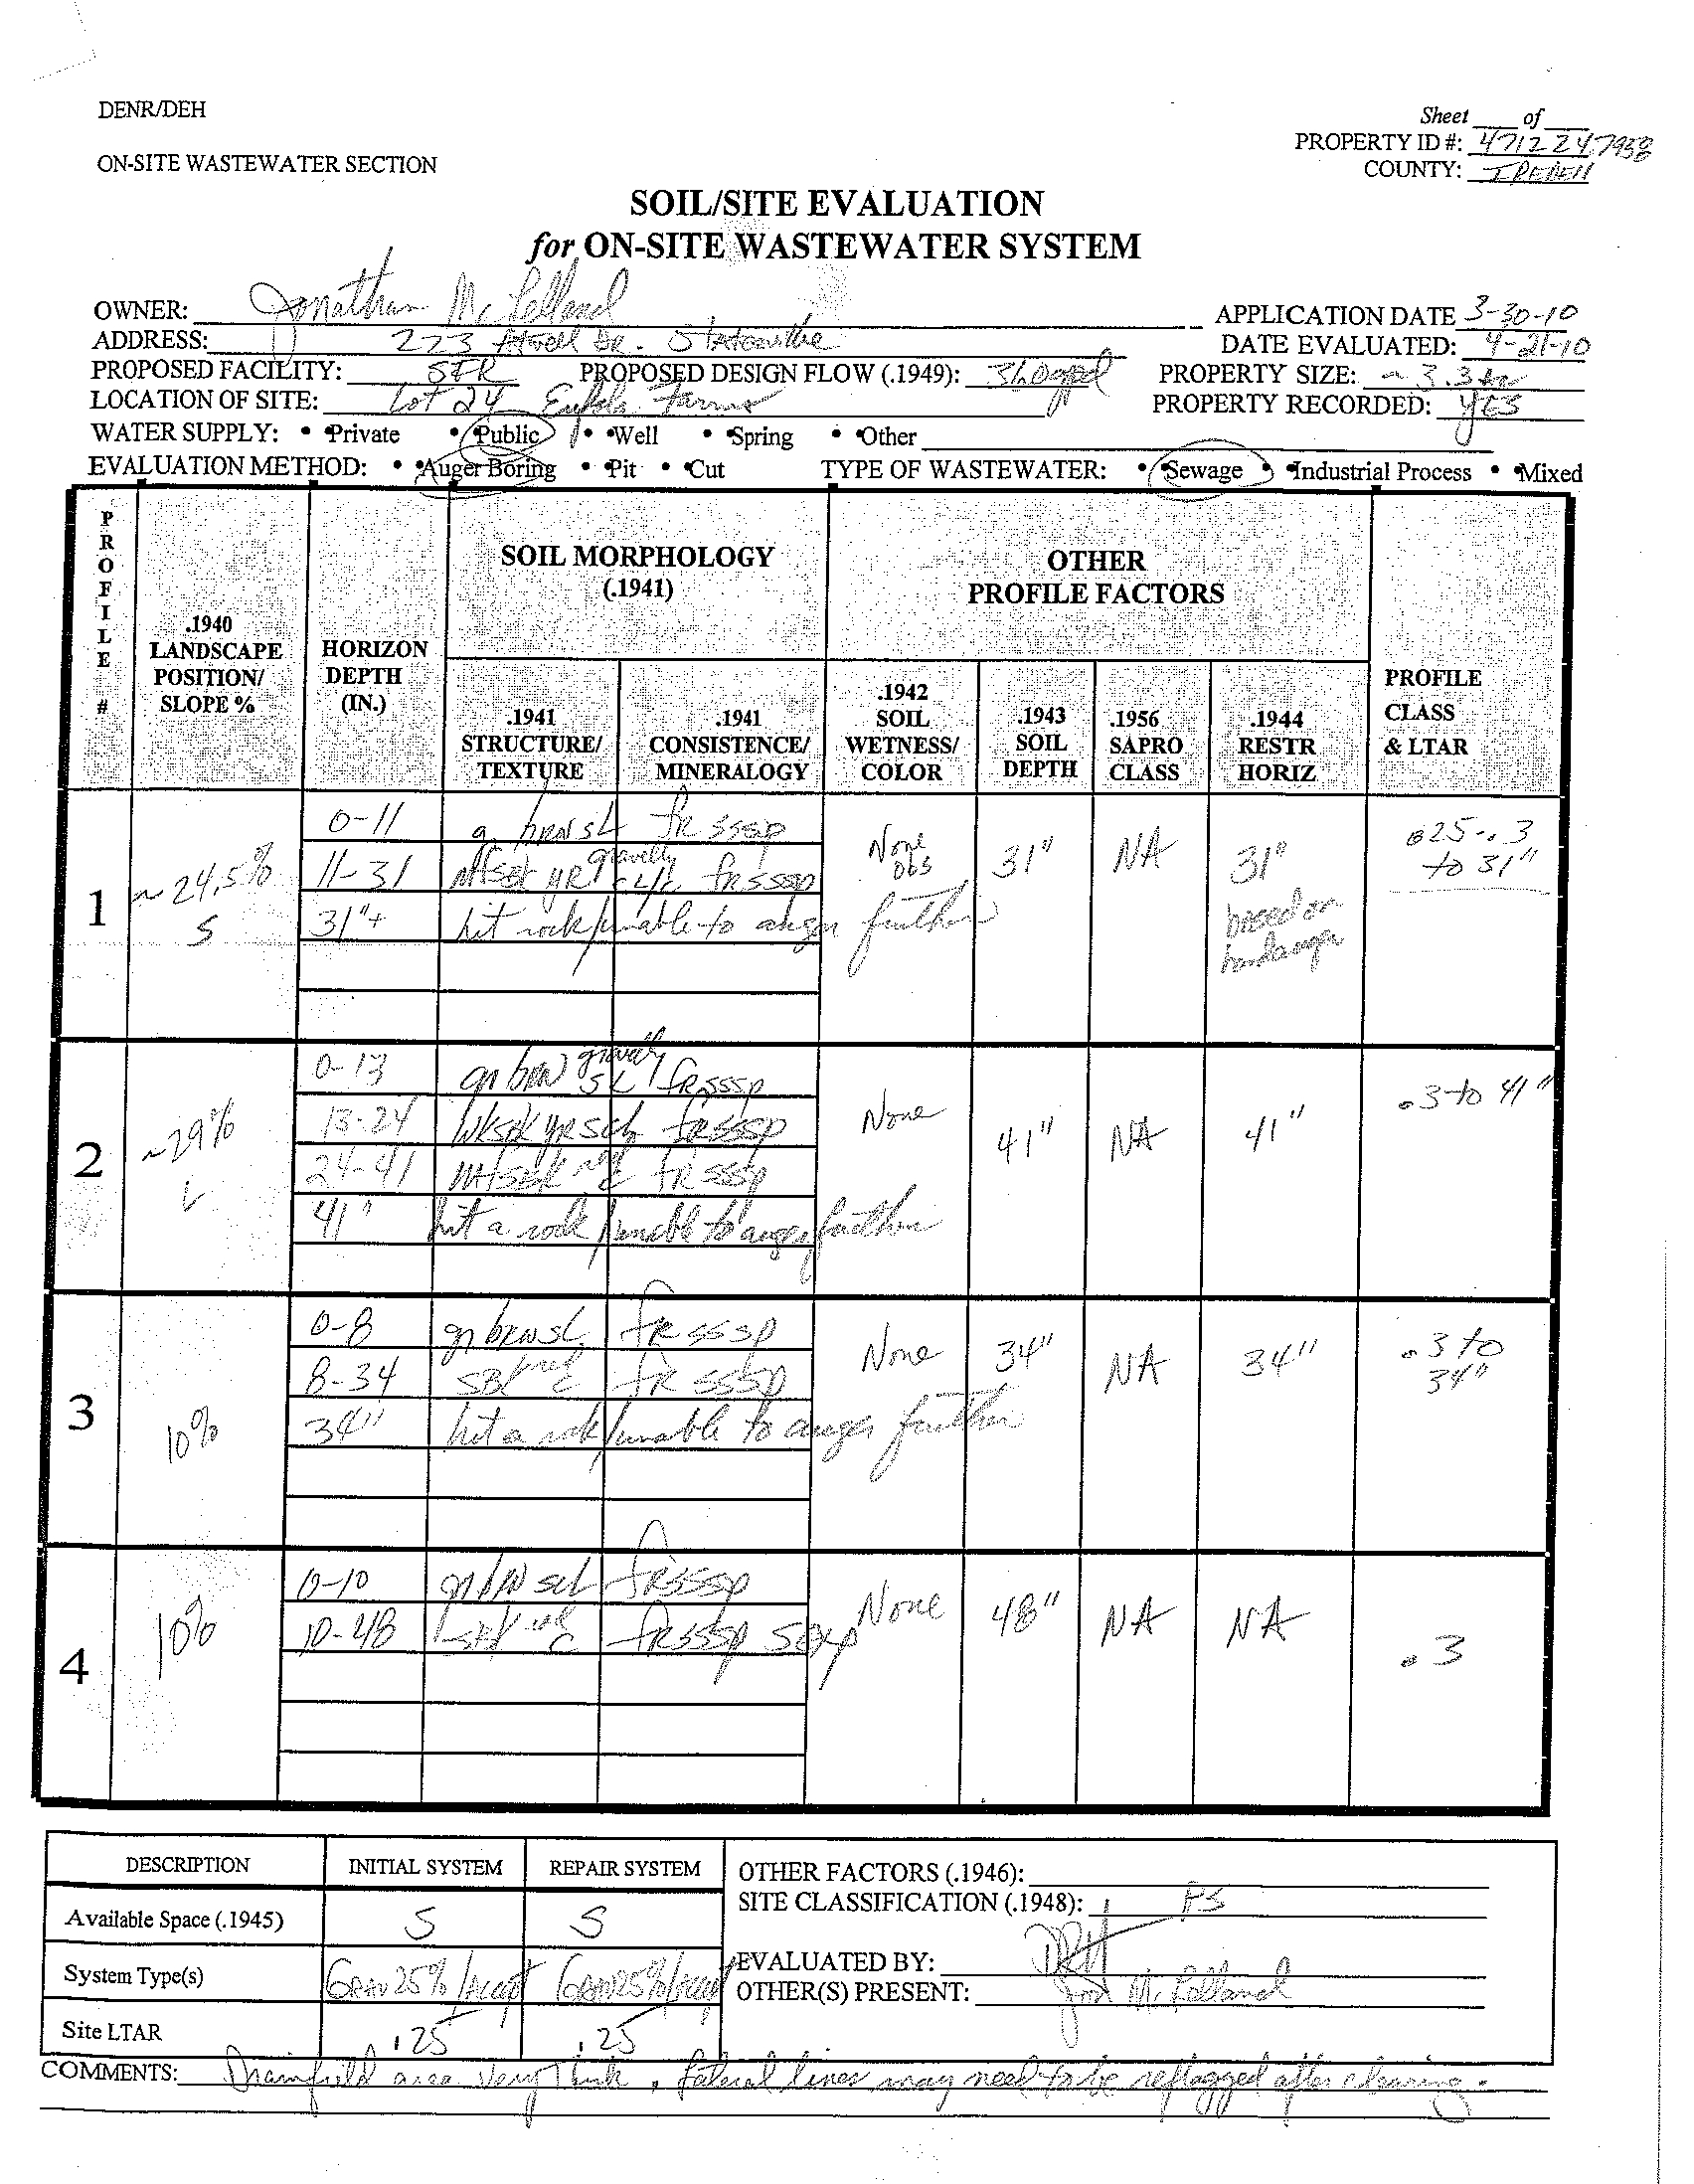 DENR/DEH
Sheet ___ of ___
PROPERTY ID #: 4712247958
ON-SITE WASTEWATER SECTION
COUNTY: IREDELL
SOIL/SITE EVALUATION
for ON-SITE WASTEWATER SYSTEM
OWNER: Jonathan McLelland
APPLICATION DATE 3-30-10
ADDRESS: 223 Dr. Statesville
DATE EVALUATED: 4-21-10
PROPOSED FACILITY: SFR PROPOSED DESIGN FLOW (.1949): 360gpd PROPERTY SIZE: ~ 3.3 Ac
LOCATION OF SITE: Lot 24 Eufola Farms PROPERTY RECORDED: YES
WATER SUPPLY: • Private • Public • Well • Spring • Other
EVALUATION METHOD: • Auger Boring • Pit • Cut TYPE OF WASTEWATER: • Sewage • Industrial Process • Mixed
PROFILE #
.1940 LANDSCAPE POSITION/ SLOPE %
HORIZON DEPTH (IN.)
SOIL MORPHOLOGY (.1941)
OTHER PROFILE FACTORS
.1941 STRUCTURE/ TEXTURE
.1941 CONSISTENCE/ MINERALOGY
.1942 SOIL WETNESS/ COLOR
.1943 SOIL DEPTH
.1956 SAPRO CLASS
.1944 RESTR HORIZ
PROFILE CLASS & LTAR
1
~ 24.5%
S
0-11 brn SL fr sssp
11-31 gravelly frsssp
31"+ hit rock/unable to auger further
None obs
31"
NA
31" based on hand auger
.25-.3 to 31"
2
~29%
L
0-13 gr brn gravelly SL frsssp
13-24 wksbk yr scl frsssp
24-41 red c frsssp
41" hit a rock/unable to auger further
None
41"
NA
41"
.3 to 41"
3
10%
0-8 gr brn sL fr sssp
8-34 SBK red c fr sssp
34" hit a rock/unable to auger further
None
34"
NA
34"
.3 to 34"
4
10%
0-10 gr brn scl frsssp
10-48 sbk red c frsssp
None
48"
NA
NA
.3
DESCRIPTION INITIAL SYSTEM REPAIR SYSTEM
Available Space (.1945) S S
System Type(s) Grav 25%/Accept Grav 25%/Accept
Site LTAR .25 .25
OTHER FACTORS (.1946):
SITE CLASSIFICATION (.1948): PS
EVALUATED BY:
OTHER(S) PRESENT: Jon McLelland
COMMENTS: Drainfield area very thick, lateral lines may need to be reflagged after clearing.